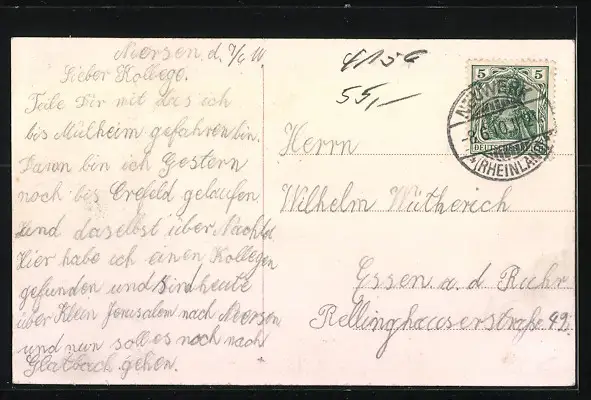 Neersen, d. 7/6 10
Lieber Kollege.
Teile Dir mit das ich
bis Mülheim gefahren bin.
Dann bin ich Gestern
noch bis Crefeld gelaufen
und daselbst über Nacht
Hier habe ich einen Kollegen
gefunden und sind heute
über Klein Jerusalem nach Neersen
und nun soll es noch nach
Glatbach gehen.
55,-
Herrn
Wilhelm Wütherich
Essen a. d Ruhr
Rellinghauserstraße 49.
5 5
DEUTSCHES REICH
8.6.10.
(RHEINLAND)